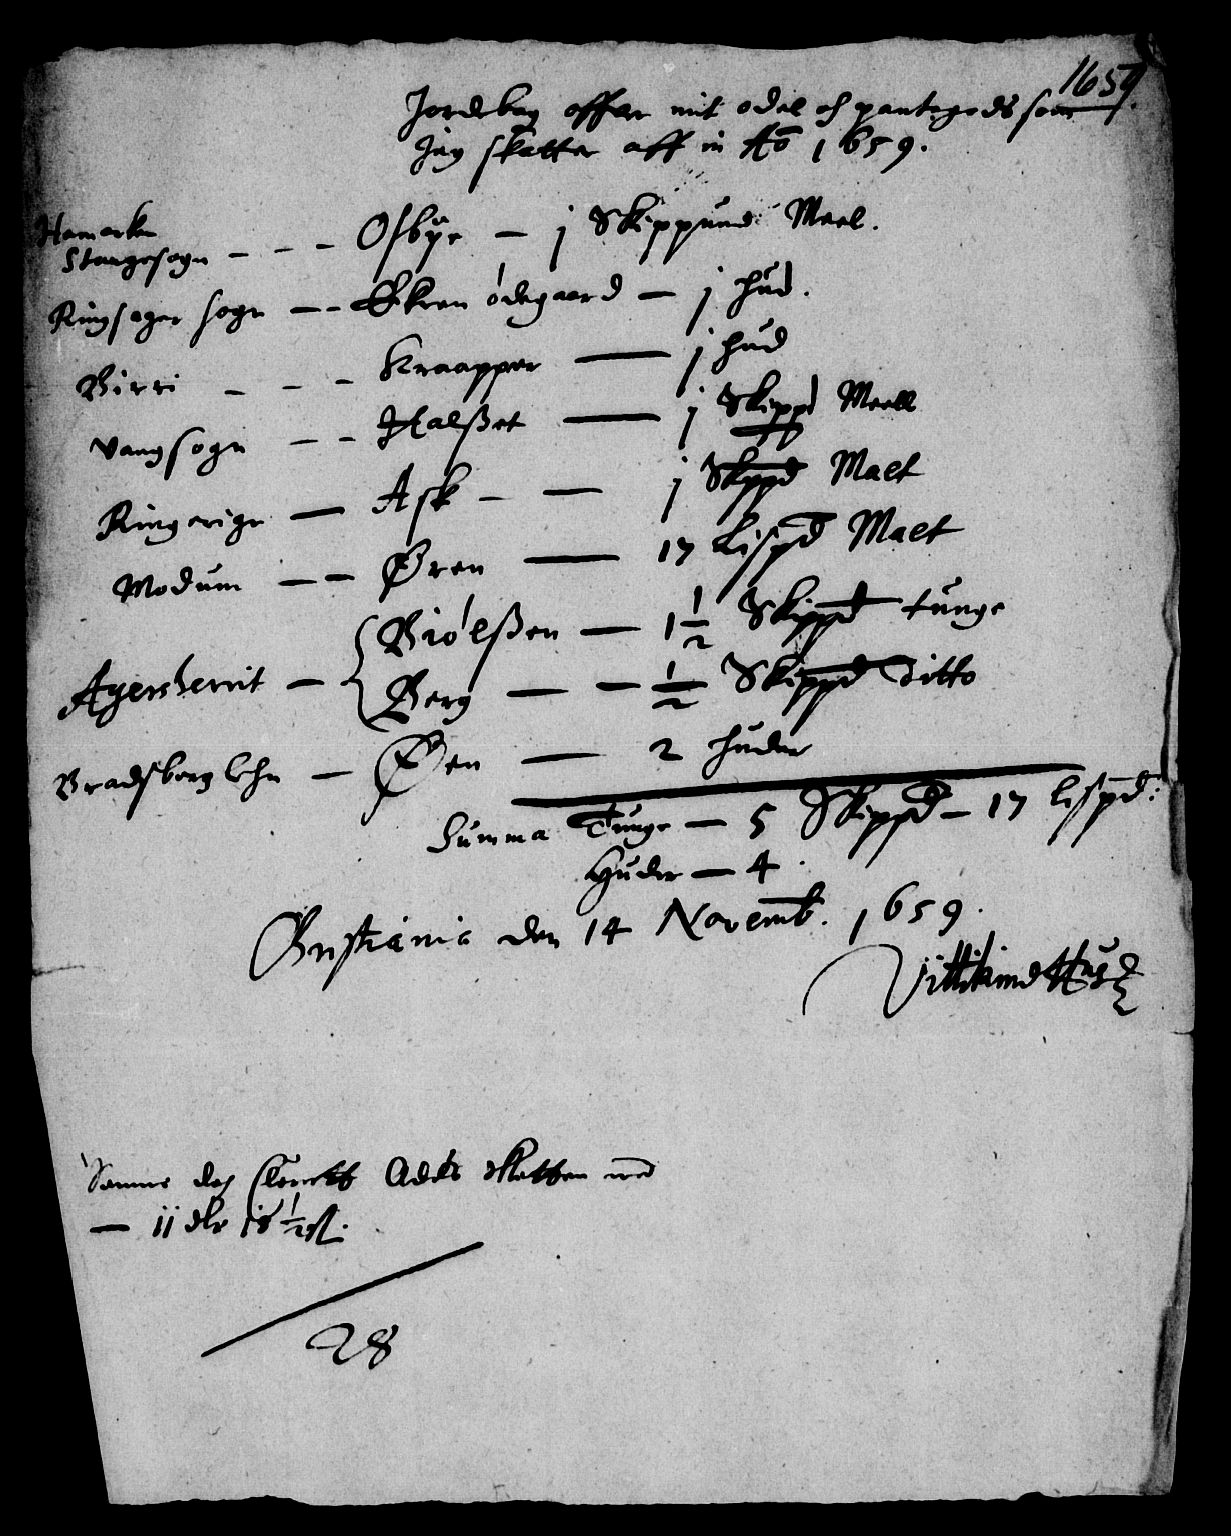 1659.
Jordebog offuer mit odel och pantegods som
Jeg skatter aff in Ao 1659.
Hamarken
Stangesogn - - - Ofbye - j Skippund Meel.
Ringsager sogn -- Ekren ødegaard - j hud.
Birri - - - Kraapper - j hud
Vangsogn - - Halßet - j Skippd Meell
Ringerige - Ask - - j Skppd Malt
Modum -- Øren - 17 Lispd Malt
Agersherrit - { Biølßen - 1 1/2 Skippd tunge
Berg - - 1/2 Skippd ditto
Bradsberg lehn - Øen - 2 huder
Summa Tunge - 5 Skippd - 17 lispd:
Huder - 4.
Cristiania den 14 Novemb. 1659.
Vittikind Hus
Samme dag Adels skatten med
- ii dlr 18 1/2 sk.
28